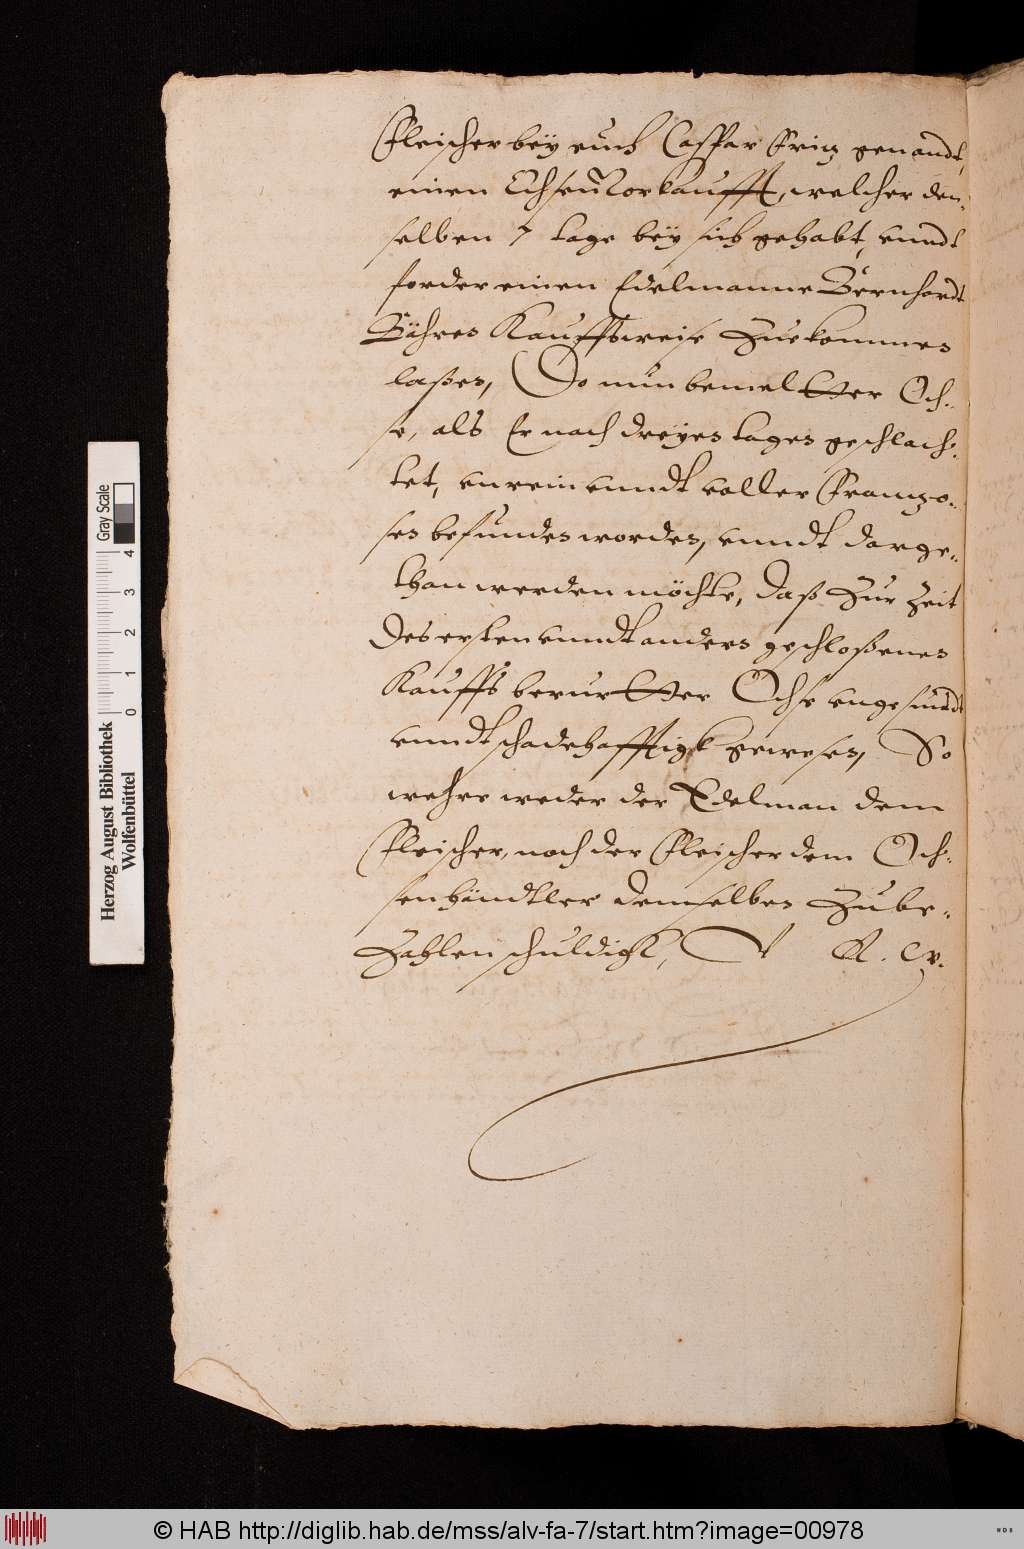 Fleischer beÿ euch Caspar Fritz genandt,
einen Ochsen Vorkaufft, welcher den-
selben 7 tage beÿ sich gehabt, vnndt
forder einen Edelmanne Bernhardt
Kauffsweise Zuekommen
laßen, Do nun bemeltter Och-
se, als Er nach dreÿen tagen geschlach-
tet, vnrein vnndt voller Franzo-
sen befunden worden, vnndt darge-
than werden möchte, daß Zur Zeit
des ersten vnndt anders geschloßenen
Kauffs berurtter Ochse vngesundt
vnndt schadehafftigk gewesen, So
wehre weder der Edelman dem
Fleischer, noch der Fleischer dem Och-
senhändtler denselben Zube-
Zahlen schuldigk, V R. W.
Herzog August Bibliothek
Wolfenbüttel
0 1 2 3 4
Gray Scale
© HAB http://diglib.hab.de/mss/alv-fa-7/start.htm?image=00978